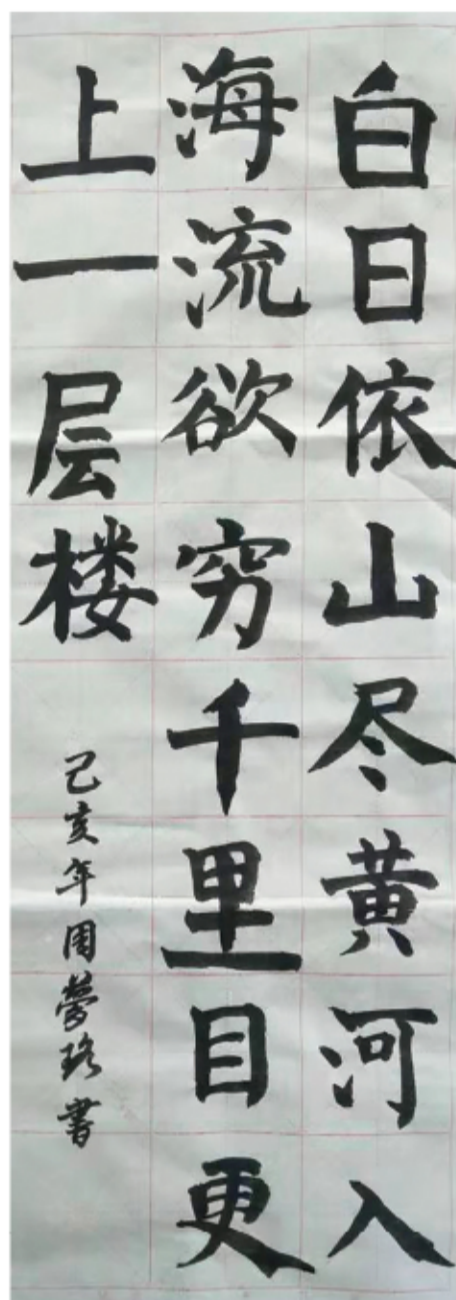 白日依山尽黄河入
海流欲穷千里目更
上一层楼
己亥年周梦珞書